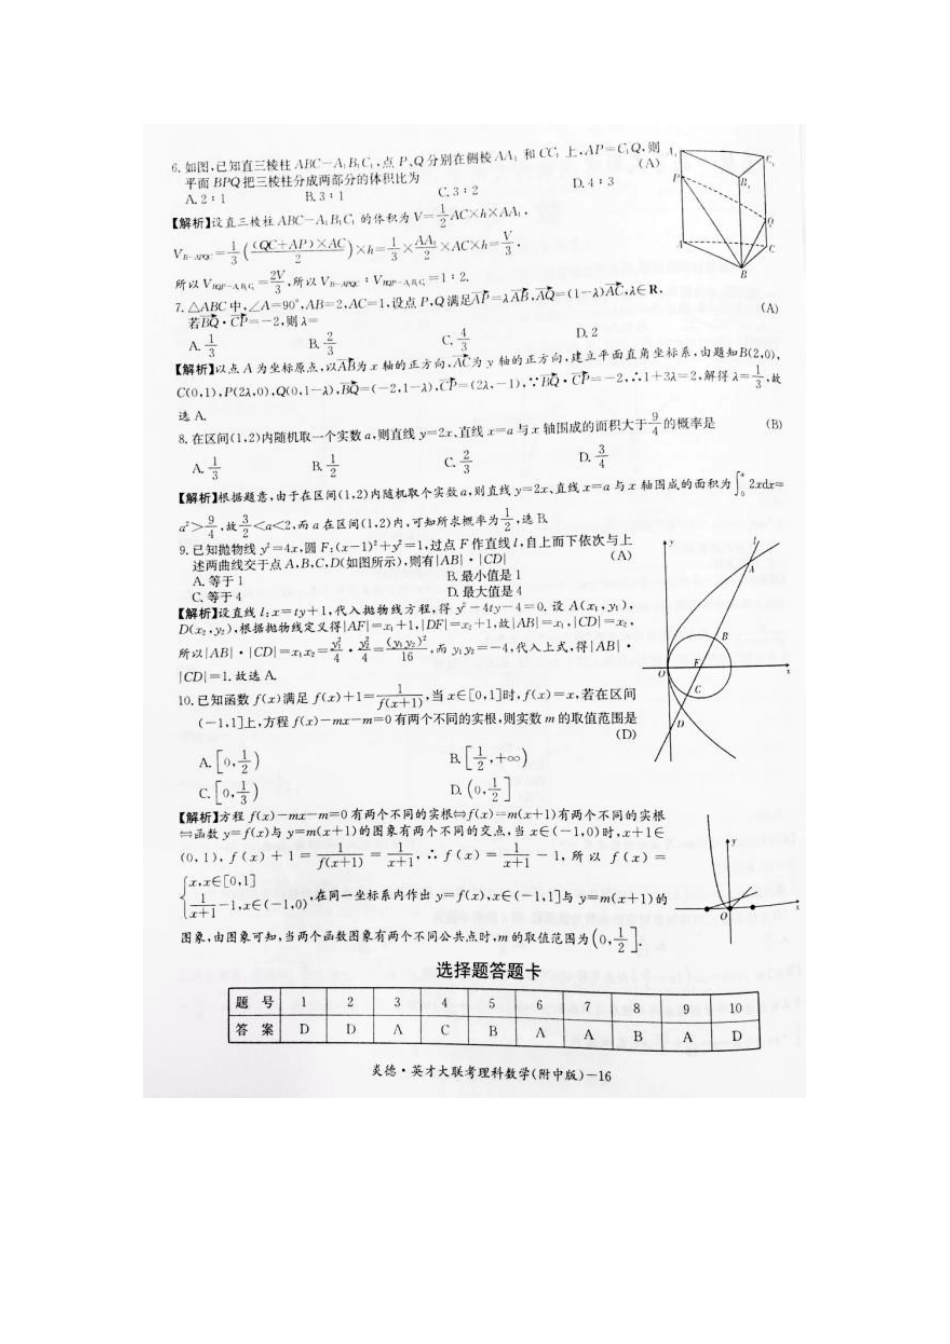 6. 如图,已知直三棱柱 ABC-A₁B₁C₁,点 P、Q 分别在侧棱 AA₁ 和 CC₁ 上,AP=C₁Q,则
平面 BPQ 把三棱柱分成两部分的体积比为 (A)
A. 2∶1 B. 3∶1 C. 3∶2 D. 4∶3
【解析】设直三棱柱 ABC-A₁B₁C₁ 的体积为 V=1/2 AC×h×AA₁,
V_{B-APQC}=1/3((QC+AP)×AC/2)×h=1/3×AA₁/2×AC×h=V/3,
所以 V_{BQP-A₁B₁C₁}=2V/3,所以 V_{B-APQC}∶V_{BQP-A₁B₁C₁}=1∶2.
7. △ABC 中,∠A=90°,AB=2,AC=1,设点 P、Q 满足AP→=λAB→,AQ→=(1-λ)AC→,λ∈R,
若BQ→·CP→=-2,则 λ= (A)
A. 1/3 B. 2/3 C. 4/3 D. 2
【解析】以点 A 为坐标原点,以AB→为 x 轴的正方向,AC→为 y 轴的正方向,建立平面直角坐标系,由题知B(2,0),
C(0,1),P(2λ,0),Q(0,1-λ),BQ→=(-2,1-λ),CP→=(2λ,-1),∵BQ→·CP→=-2,∴1+3λ=2,解得 λ=1/3,故
选 A.
8. 在区间(1,2)内随机取一个实数 a,则直线 y=2x、直线 x=a 与 x 轴围成的面积大于 9/4 的概率是 (B)
A. 1/3 B. 1/2 C. 2/3 D. 3/4
【解析】根据题意,由于在区间(1,2)内随机取个实数 a,则直线 y=2x、直线 x=a 与 x 轴围成的面积为∫₀ᵃ 2xdx=
a²>9/4,故 3/2<a<2,而 a 在区间(1,2)内,可知所求概率为 1/2,选 B.
9. 已知抛物线 y²=4x,圆 F:(x-1)²+y²=1,过点 F 作直线 l,自上而下依次与上
述两曲线交于点 A,B,C,D(如图所示),则有|AB|·|CD| (A)
A. 等于 1 B. 最小值是 1
C. 等于 4 D. 最大值是 4
【解析】设直线 l:x=ty+1,代入抛物线方程,得 y²-4ty-4=0. 设 A(x₁,y₁),
D(x₂,y₂),根据抛物线定义得|AF|=x₁+1,|DF|=x₂+1,故|AB|=x₁,|CD|=x₂,
所以|AB|·|CD|=x₁x₂=y₁²/4·y₂²/4=(y₁y₂)²/16,而 y₁y₂=-4,代入上式,得|AB|·
|CD|=1.故选 A.
10. 已知函数 f(x)满足 f(x)+1=1/f(x+1),当 x∈[0,1]时,f(x)=x,若在区间
(-1,1]上,方程 f(x)-mx-m=0 有两个不同的实根,则实数 m 的取值范围是
(D)
A. [0,1/2) B. [1/2,+∞)
C. [0,1/3) D. (0,1/2]
【解析】方程 f(x)-mx-m=0 有两个不同的实根⇔f(x)=m(x+1)有两个不同的实根
⇔函数 y=f(x)与 y=m(x+1)的图象有两个不同的交点,当 x∈(-1,0)时,x+1∈
(0,1), f(x)+1=1/f(x+1)=1/(x+1),∴f(x)=1/(x+1)-1,所以 f(x)=
{x,x∈[0,1]
1/(x+1)-1,x∈(-1,0),在同一坐标系内作出 y=f(x),x∈(-1,1]与 y=m(x+1)的
图象,由图象可知,当两个函数图象有两个不同公共点时,m 的取值范围为(0,1/2].
选择题答题卡
题 号 1 2 3 4 5 6 7 8 9 10
答 案 D D A C B A A B A D
炎德·英才大联考理科数学(附中版)-16